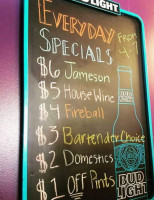 LIGHT
EVERYDAY
SPECIALS
From
4-7
$6 Jameson
$5 House Wine
$4 Fireball
$3 Bartender Choice
$2 Domestics
$1 OFF Pints
BUD
LIGHT